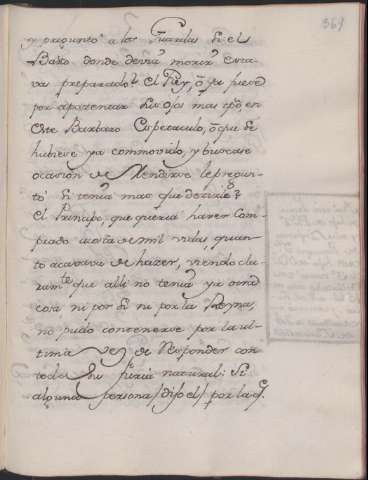 369
y preguntò a las Guardas si el
Baxo donde devia morir esta
va preparado. El Rey, ò ya fuese
por apazentar sus ojos mas tpõ en
este Barbaro Espectaculo, ò que se
huviese ya commovido, y buscase
ocasion de Renderse le pregun
tò si tenia mas que decirle?
El Principe, que queria haver Com
prado acosta de mil vidas, quan
to acavava de hazer, viendo cla
ramte que alli no tenia ya otra
cosa ni por si ni por la Reyna,
no pudo contenerse por la ul-
tima vez de Responder con
toda su furia natural: Si
alguna persona /dijo el/ por la q.